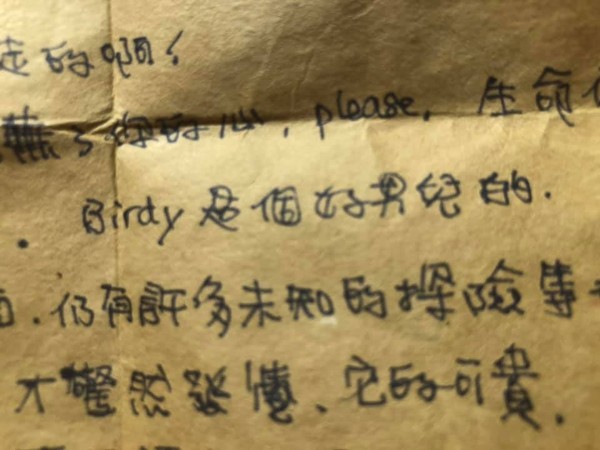 走的啊!
了你的心, please, 生命
Birdy是個好男兒的.
面.仍有許多未知的探險事
才驚然發憶、它的可貴.